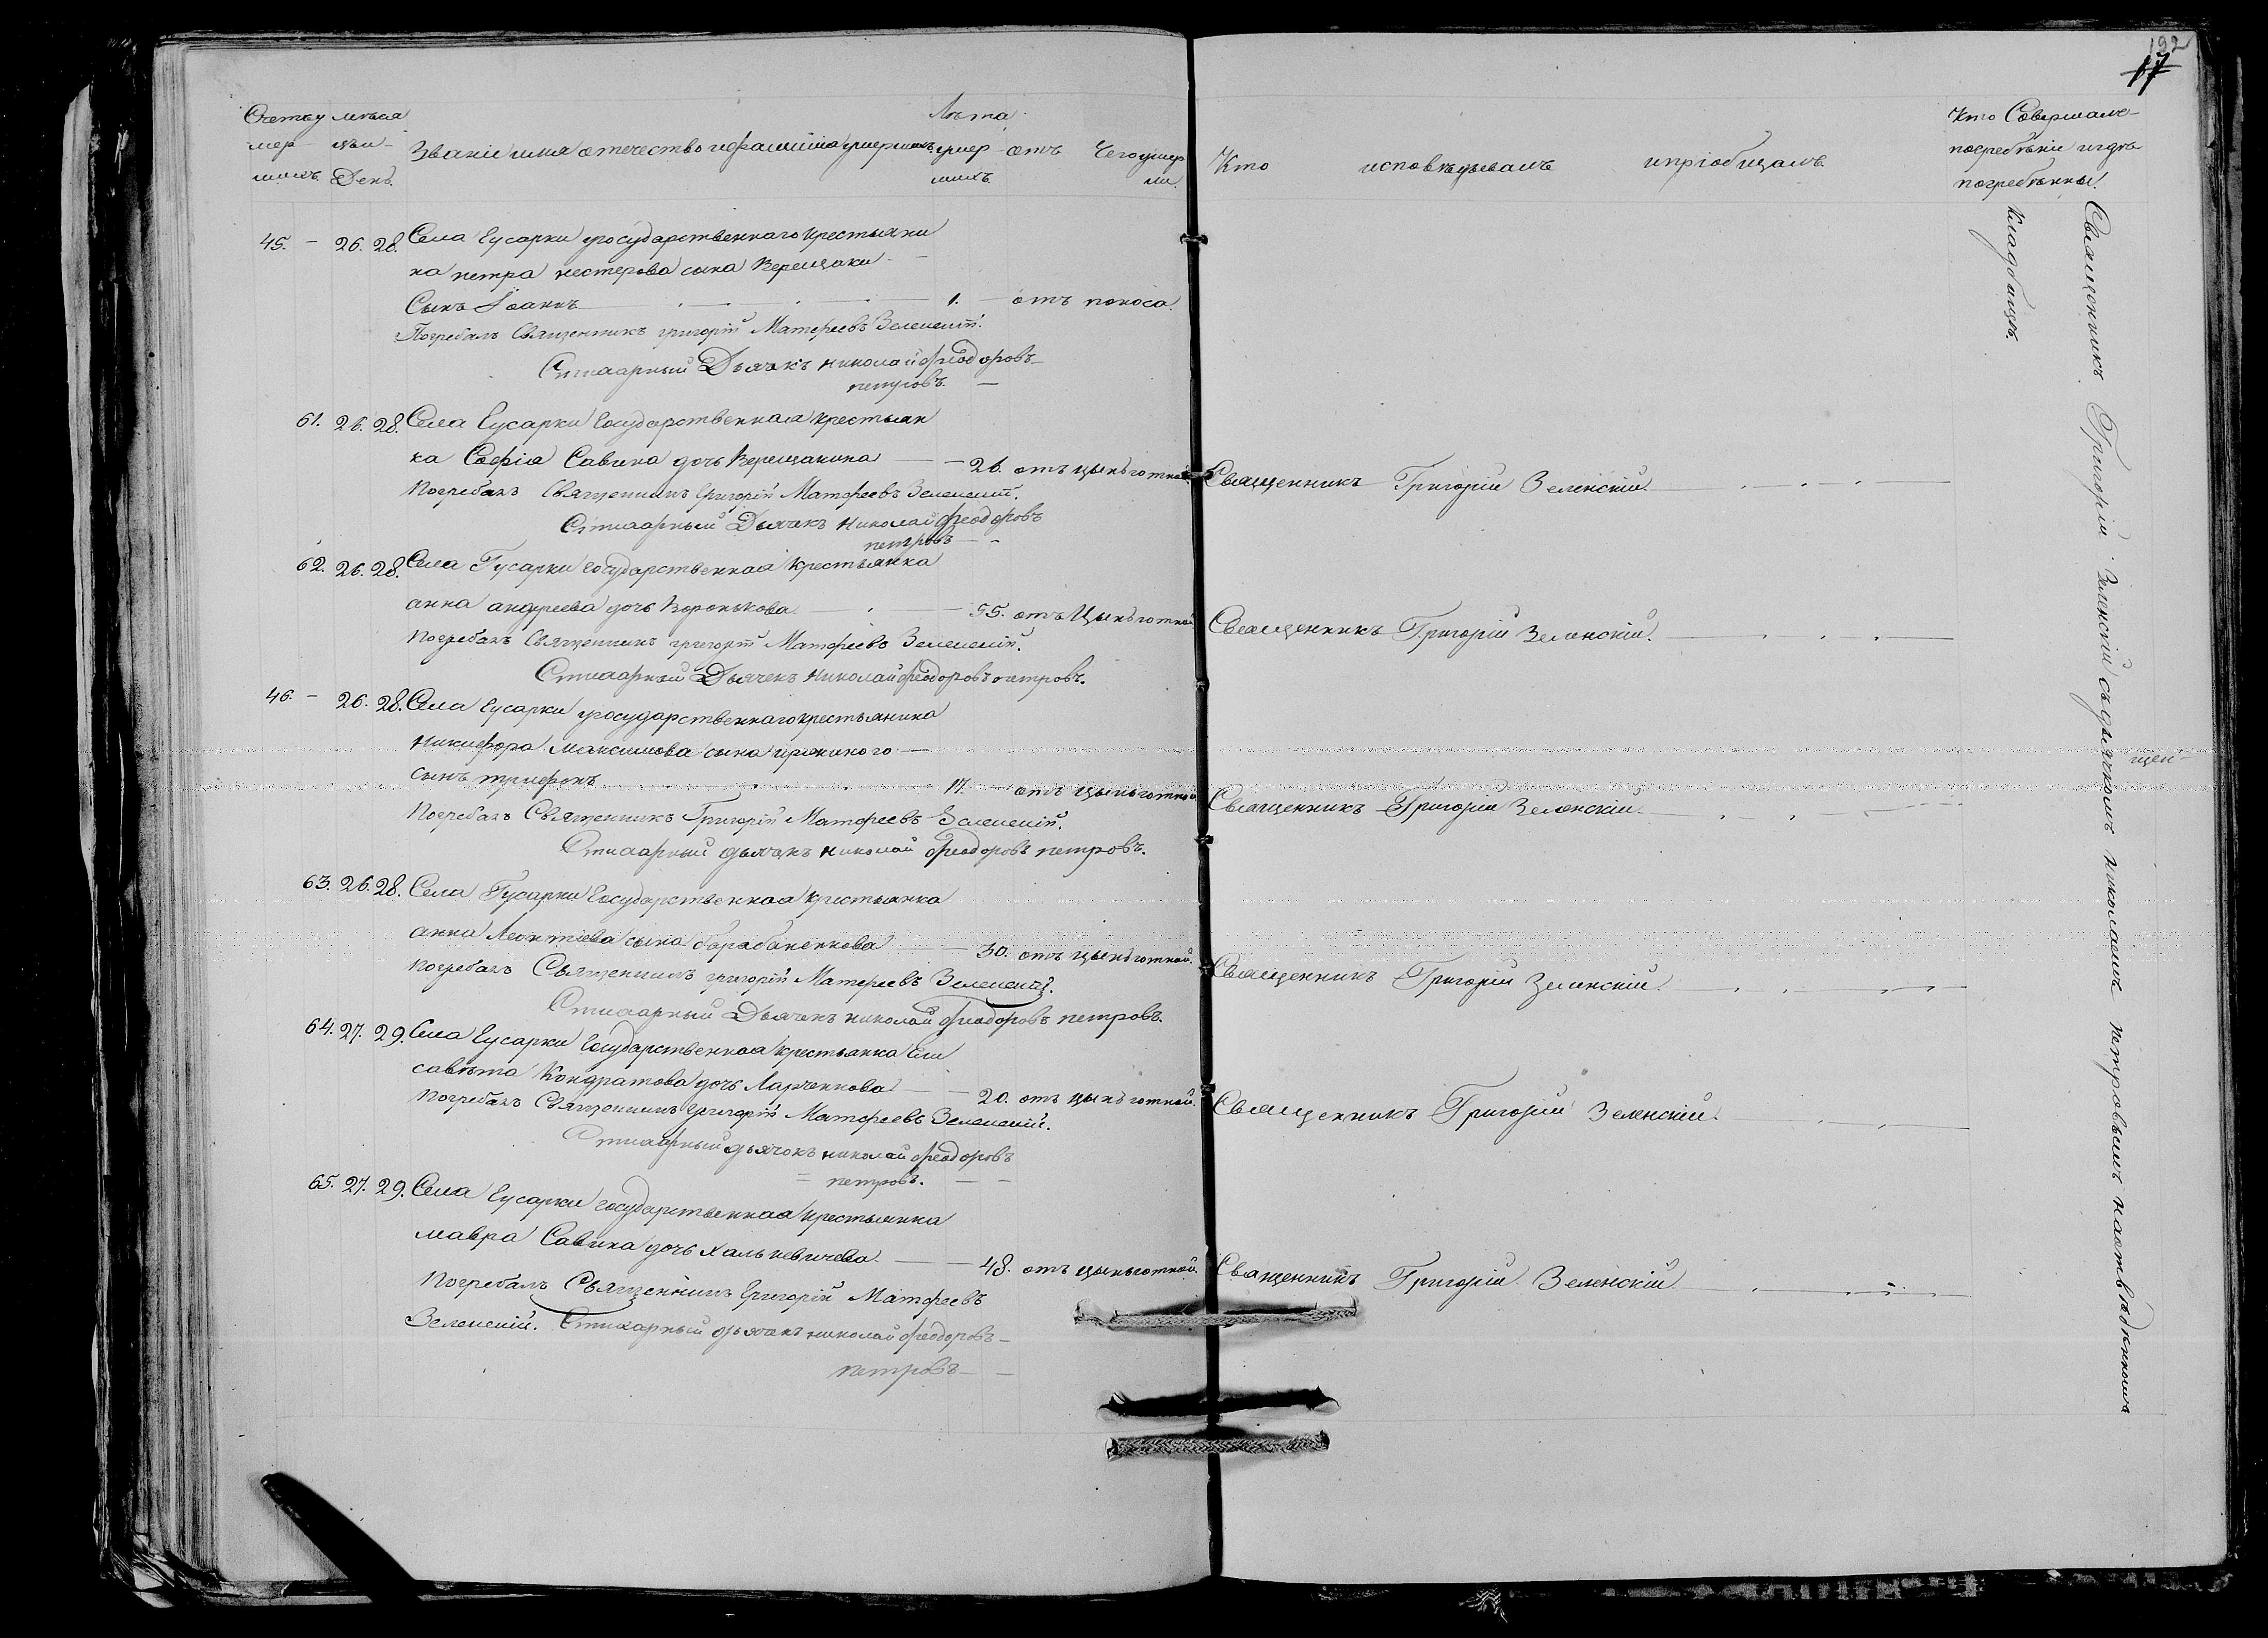 192
17
Счетъ у
мер
шихъ
мѣсяц
и
День.
Званіе имя отечество и фамилія умершихъ
Лѣта
умер
шихъ
отъ Чего умер
ли.
Кто исповѣдывалъ и пріобщалъ
Кто Совершалъ
погребѣніе и гдѣ
погребѣнны.
45. – 26. 28. Села Гусарки государственнаго крестьяни
на петра нестерова сына Верещаки –
Сынъ Іоаннъ 1. – отъ поноса.
Погребалъ Священникъ григорій Матфеевъ Зеленскій.
Стихарный Дьячекъ николай феодоровъ
петровъ. –
61. 26. 28. Села Гусарки Государственная крестьян
ка Софія Савина дочь Верещакина – 26. отъ цынготной
Погребалъ Священникъ Григорій Матфеевъ Зеленскій.
Стихарный Дьячекъ николай феодоровъ
петровъ – -
Священникъ Григорій Зеленскій.
62. 26. 28. Села Гусарки Государственная крестьянка
анна андреева дочь Воронькова – 55. отъ Цынготной
Погребалъ Священникъ григорій Матфеевъ Зеленскій.
Стихарный Дьячекъ николай феодоровъ петровъ.
Священникъ Григорій Зеленскій.
46. – 26. 28. Села Гусарки государственнаго крестьянина
Никифора Максимова сына –
сынъ трифонъ 17. – отъ цынготной
Погребалъ Священникъ Григорій Матфеевъ Зеленскій.
Стихарный дьячекъ николай феодоровъ петровъ.
Священникъ Григорій Зеленскій.
63. 26. 28. Села Гусарки Государственная крестьянка
анна Леонтіева сына барабаненкова – 30. отъ цынготной.
Погребалъ Священникъ григорій Матфеевъ Зеленскій.
Стихарный Дьячекъ николай феодоровъ петровъ.
Священникъ Григорій Зеленскій.
64. 27. 29. Села Гусарки Государственная крестьянка Ели
савѣта Кондратова дочь Марченкова – 20. отъ цынготной.
Погребалъ Священникъ Григорій Матфеевъ Зеленскій.
Стихарный дьячокъ николай феодоровъ
= петровъ. – –
Священникъ Григорій Зеленскій.
65. 27. 29. Села Гусарки государственная крестьянка
мавра Савина дочь Халькевичева. – 48. отъ цынготной.
Погребалъ Священникъ Григорій Матфеевъ
Зеленскій. Стихарный дьячекъ николай феодоровъ –
петровъ – –
Священникъ Григорій Зеленскій.
Кладбищѣ.
Священникъ Григорій Зеленскій съ дьячкомъ николаемъ петровымъ на отвѣденномъ
щен–